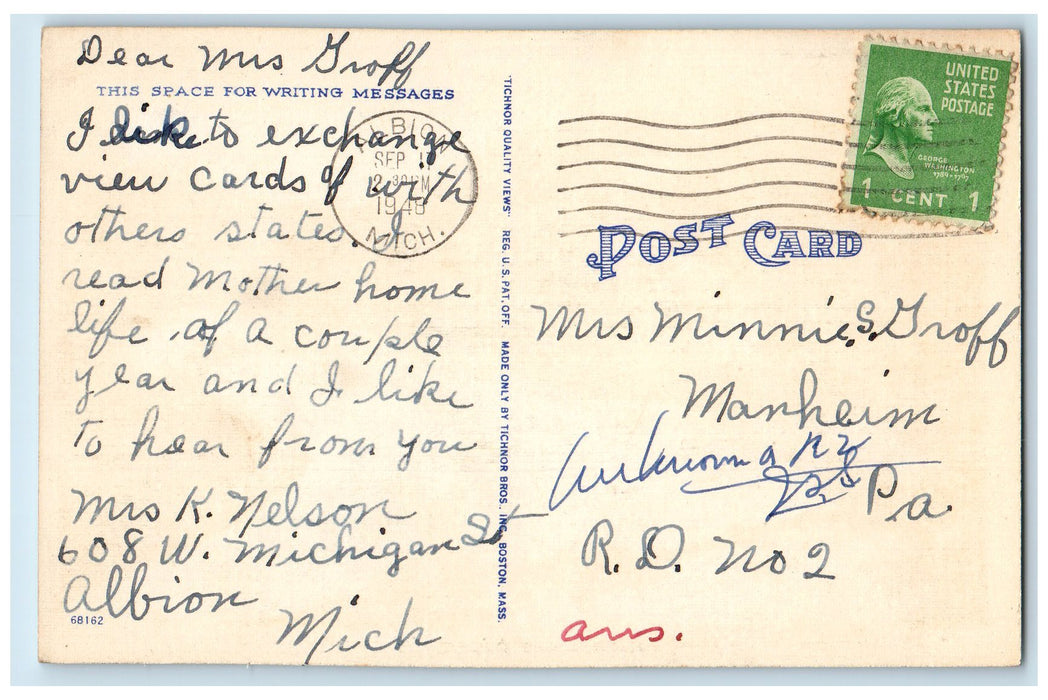 Dear Mrs Groff
THIS SPACE FOR WRITING MESSAGES
I like to exchange
view cards of with
others states. I
read Mother home
life of a couple
year and I like
to hear from you
Mrs K. Nelson
608 W. Michigan St
Albion
Mich
68162
ALBION
SEP
1948
MICH.
"TICHNOR QUALITY VIEWS" REG. U. S. PAT. OFF. MADE ONLY BY TICHNOR BROS. INC. BOSTON, MASS.
UNITED
STATES
POSTAGE
GEORGE
WASHINGTON
1789-1797
1 CENT 1
POST CARD
Mrs Minnie S. Groff
Manheim
Unknown
Pa.
R. D. No 2
ans.